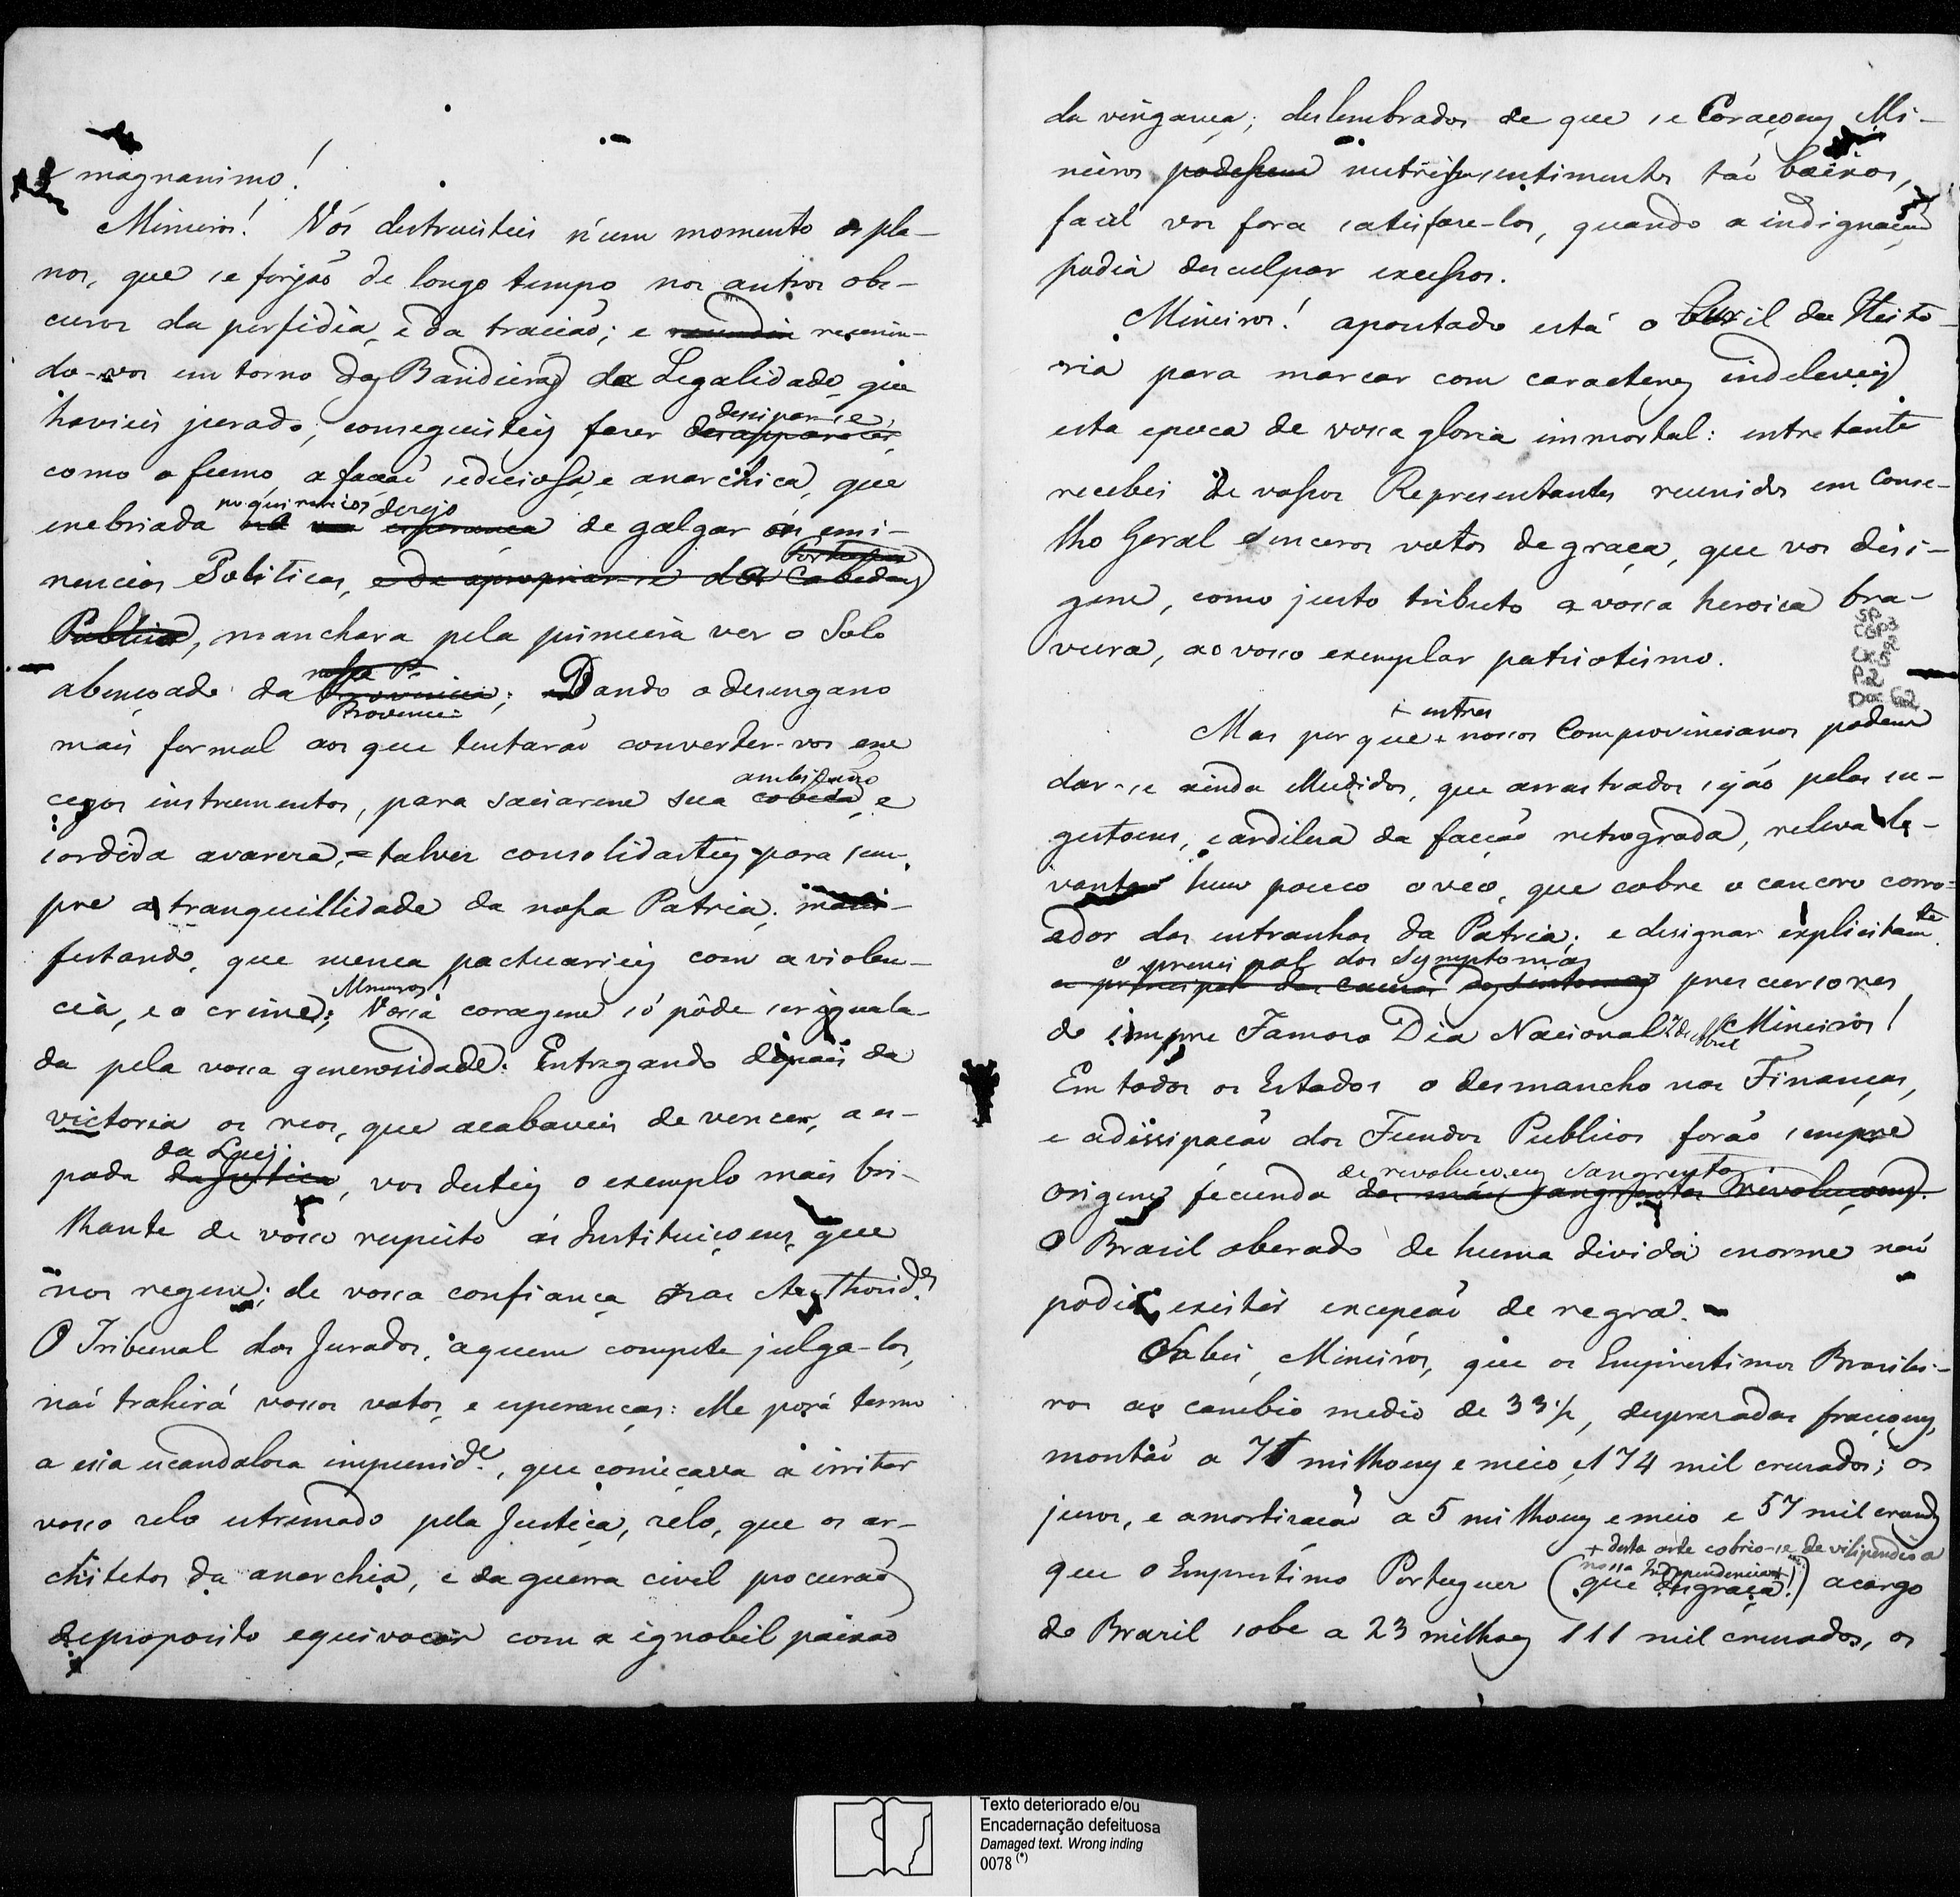 magnanimo!
Mineiros! Vós destruisteis n'um momento os pla-
nos, que se forjão de longo tempo nos antros obs-
curos da perfidia, e da traicão; e reunin-
do-vos em torno das Bandeiras da Legalidade, que
havieis jurado, conseguisteis fazer desapparecer dissipar-se,
como o fumo, a facção sediciosa, e anarchica, que
enebriada no quimerico desejo esperança de galgar ás emi-
nencias Politicas, e de apropriar-se dos Cabedaes
Publicos, manchara pela primeira vez o Solo
abençoado da nossa P. Provincia; Dando o desengano
mais formal aos que tentarão converter-vos em
cegos instrumentos, para saciarem sua cobiça ambição e
sordida avareza, = talvez consolidasteis para sem-
pre a tranquillidade da nossa Patria, mani-
festando, que nunca pactuarieis com a violen-
cia, e o crime; Mineiros! Vossa coragem só pôde ser iguala-
da pela vossa generosidade: Entregando depois da
victoria os reos, que acabaveis de vencer, a es-
pada da Justica da Lei, vos desteis o exemplo mais bri-
lhante de vosso respeito ás Instituiçoens, que
nos regem; de vossa confiança nas Authorid.es
O Tribunal dos Jurados, aquem compete julga-los,
naõ trahirá vossos votos, e esperanças: Elle porá termo
a essa escandalosa impunid.e, que começava a irritar
vosso zelo estremado pela Justiça, zelo, que os ar-
chitetos da anarchia, e da guerra civil procurão
de proposito equivocar com a ignobil paixão
da vingança; deslembrados de que se Coraçoens Mi-
neiros podessem nutrir sentimentos taõ baixos,
facil vos fora satisfaze-los, quando a indignação
podia desculpar excessos.
Mineiros! apontado está o Buril da Histo-
ria para marcar com caracteres indeleveis
esta epoca de vossa gloria immortal: entretanto
recebei de vossos Representantes reunidos em Conse-
lho Geral sinceros votos de graça, que vos diri-
gem, como justo tributo a vossa heroica bra-
vura, ao vosso exemplar patriotismo.
SP
CGP3
CX52
P.2
Doc 62
Mas por que + + entres nossos Comprovincianos podem
dar-se ainda illudidos, que arrastrados sejão pelas su-
gestoens, e ardileza da facção retrograda, releva le-
vantar hum pouco o veo, que cobre o cancro corro-
edor das entranhas da Patria; e designar explicitam.te
o principal dos Symptomas a principal das causas dos sintomas precursores
do sempre Famoso Dia Nacional 7 de Abril Mineiros!
Em todos os Estados o desmancho nas Finanças,
e a dissipacaõ dos Fundos Publicos forão sempre
origem fecunda de revoluçoens sangrentas das mais sangrentas revoluçoens.
O Brasil oberado de huma divida enorme naõ
podia, existir excepcaõ de regra.
Sabei, Mineiros, que os Emprestimos Brasilei-
ros ao cambio medio de 33 ½, desprezadas fraçoens,
montaõ a 71 milhoens e meio, e 174 mil cruzados; os
juros, e amortizacaõ a 5 milhoens e meio e 57 mil cruzados
que o Emprestimo Portuguez (que desgraça!) + desta arte cobrio-se de vilipendio a nossa Independencia acargo
do Brazil sobe a 23 milhoes 111 mil cruzados, os
Texto deteriorado e/ou
Encadernação defeituosa
Damaged text. Wrong inding
0078 (*)